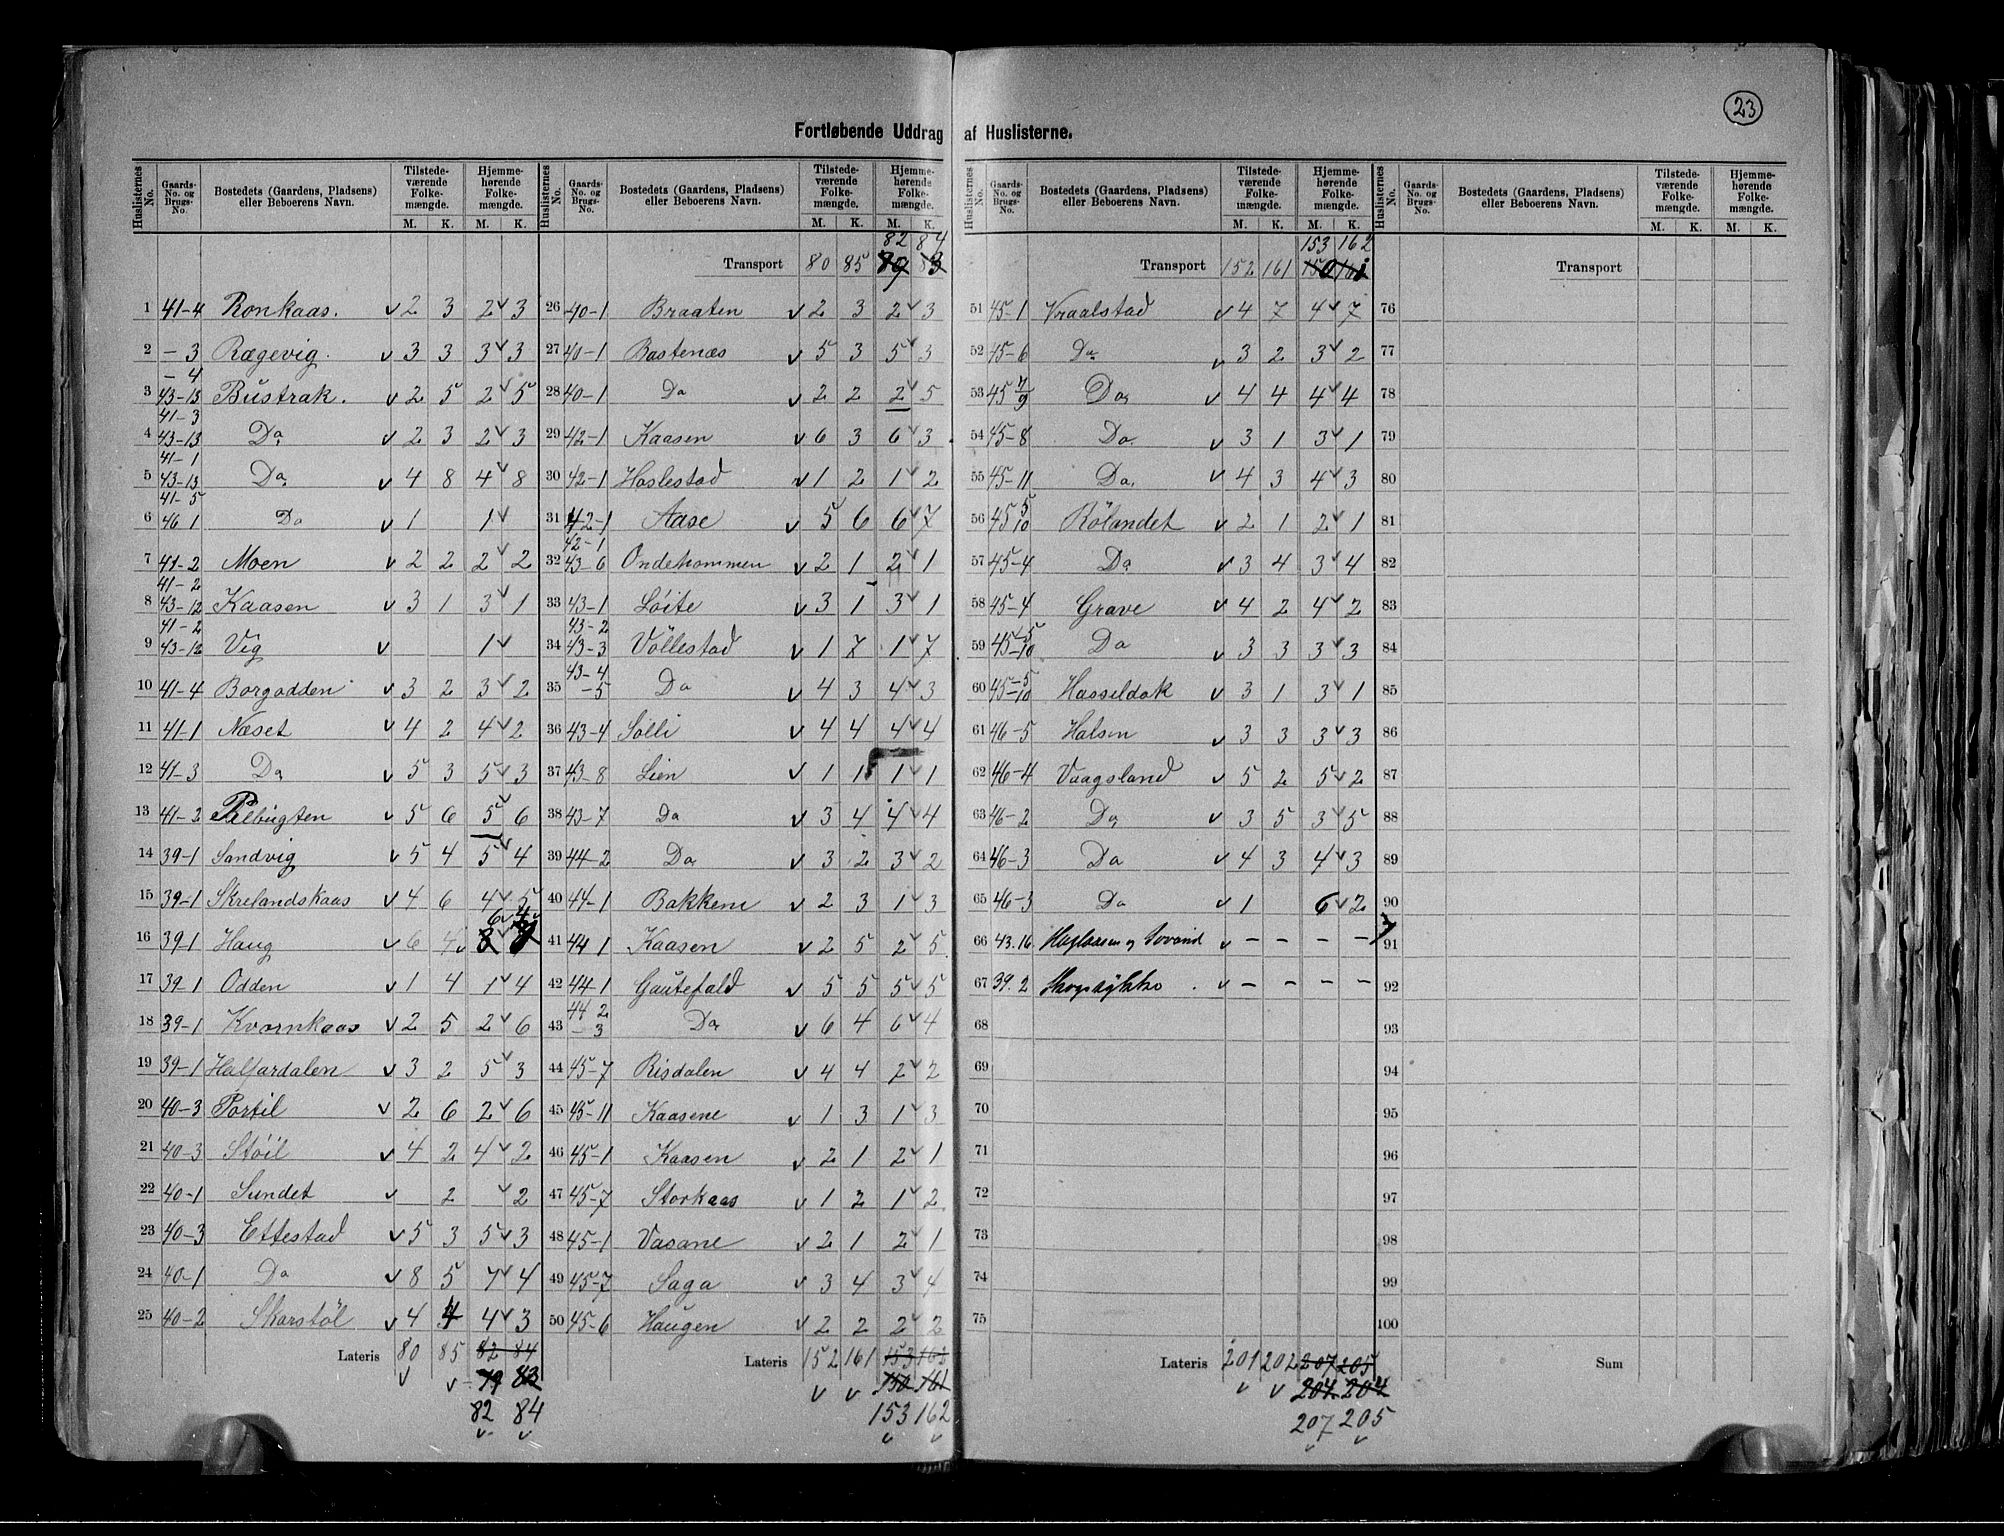 23
Fortløbende Uddrag af Huslisterne.
Huslisternes No. Gaards-No. og Brugs-No. Bostedets (Gaardens, Pladsens) eller Beboerens Navn. Tilstedeværende Folkemængde. M. K. Hjemmehørende Folkemængde. M. K.
1 41-4 Ronkaas. v 2 3 2 v 3
2 -3 Rægevig. v 3 3 3 v 3
3 -4 43-13 Bustrak. v 2 5 2 v 5
4 41-3 43-13 Do v 2 3 2 v 3
5 41-1 43-13 Do v 4 8 4 v 8
6 41-5 46 1 Do v 1 1 v
7 41-2 Moen v 2 2 2 v 2
8 41-2 43-12 Kaasen v 3 1 3 v 1
9 41-2 43-12 Vig v 1 v
10 41-4 Borgodden v 3 2 3 v 2
11 41-1 Næset v 4 2 4 v 2
12 41-3 Do v 5 3 5 v 3
13 41-2 Pilbugten v 5 6 5 v 6
14 39-1 Sandvig v 5 4 5 v 4
15 39-1 Skrelandskaas v 4 6 4 v 5
16 39-1 Haug v 6 4 6 v 4
17 39-1 Odden v 1 4 1 v 4
18 39-1 Kvornkaas v 2 5 2 v 6
19 39-1 Halfardalen v 3 2 5 v 3
20 40-3 Portil v 2 6 2 v 6
21 40-3 Støil v 4 2 4 v 2
22 40-1 Sundet v 2 v 2
23 40-3 Ettestad v 5 3 5 v 3
24 40-1 Do v 8 5 7 v 4
25 40-2 Skarstøl v 4 4 4 v 3
Lateris 80 85 82 84
79 83
82 84
Huslisternes No. Gaards-No. og Brugs-No. Bostedets (Gaardens, Pladsens) eller Beboerens Navn. Tilstedeværende Folkemængde. M. K. Hjemmehørende Folkemængde. M. K.
82 84
Transport 80 85 79 83
26 40-1 Braaten v 2 3 2 v 3
27 40-1 Bastenæs v 5 3 5 v 3
28 40-1 Do v 2 2 2 v 5
29 42-1 Kaasen v 6 3 6 v 3
30 42-1 Haslestad v 1 2 1 v 2
31 42-1 Aase v 5 6 6 v 7
32 42-1 43-6 Ondehommen v 2 1 2 v 1
33 43-1 Løite v 3 1 3 v 1
34 43-2 43-3 Vøllestad v 1 7 1 v 7
35 43-4 -5 Do v 4 3 4 v 3
36 43-4 Solli v 4 4 4 v 4
37 43-8 Lien v 1 1 1 v 1
38 43-7 Do v 3 4 4 v 4
39 44-2 Do v 3 2 3 v 2
40 44-1 Bakkene v 2 3 1 v 3
41 44 1 Kaasen v 2 5 2 v 5
42 44-1 Gautefald v 5 5 5 v 5
43 44 2 -3 Do v 6 4 6 v 4
44 45-7 Risdalen v 4 4 2 v 2
45 45-11 Kaasene v 1 3 1 v 3
46 45-1 Kaasen v 2 1 2 v 1
47 45-7 Storkaas v 1 2 1 v 2
48 45-1 Vasane v 2 1 2 v 1
49 45-7 Saga v 3 4 3 v 4
50 45-6 Haugen v 2 2 2 v 2
Lateris 152 161 153 162
150 161
153 162
Huslisternes No. Gaards-No. og Brugs-No. Bostedets (Gaardens, Pladsens) eller Beboerens Navn. Tilstedeværende Folkemængde. M. K. Hjemmehørende Folkemængde. M. K.
153 162
Transport 152 161 150 161
51 45-1 Vraalstad v 4 7 4 v 7
52 45-6 Do v 3 2 3 v 2
53 45 7/9 Do v 4 4 4 v 4
54 45-8 Do v 3 1 3 v 1
55 45-11 Do v 4 3 4 v 3
56 45 5/10 Rølandet v 2 1 2 v 1
57 45-4 Do v 3 4 3 v 4
58 45-4 Grave v 4 2 4 v 2
59 45-5-10 Do v 3 3 3 v 3
60 45-5-10 Hasseldok v 3 1 3 v 1
61 46-5 Halsen v 3 3 3 v 3
62 46-4 Vaagsland v 5 2 5 v 2
63 46-2 Do v 3 5 3 v 5
64 46-3 Do v 4 3 4 v 3
65 46-3 Do v 1 6 v 2
66 43.16 v - - - -
67 39.2 Skogstykke . v - - - -
68
69
70
71
72
73
74
75
Lateris 201 202 207 205
204 204
207 205
Huslisternes No. Gaards-No. og Brugs-No. Bostedets (Gaardens, Pladsens) eller Beboerens Navn. Tilstedeværende Folkemængde. M. K. Hjemmehørende Folkemængde. M. K.
Transport
76
77
78
79
80
81
82
83
84
85
86
87
88
89
90
91
92
93
94
95
96
97
98
99
100
Sum